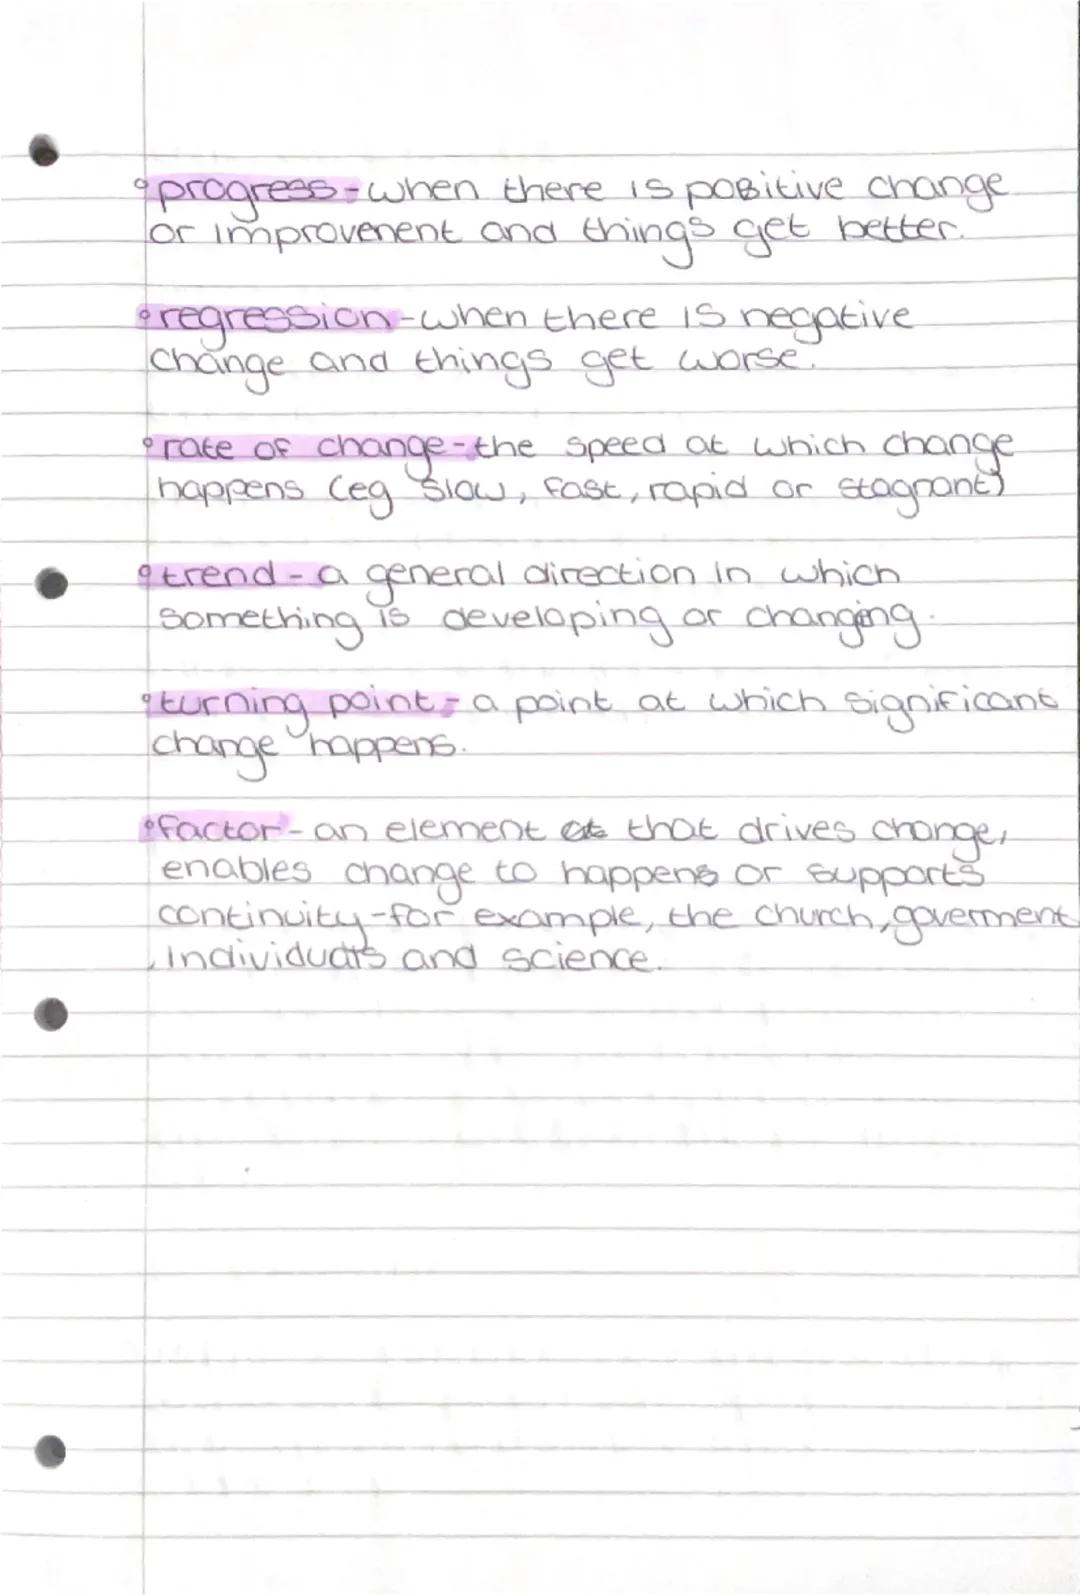 progress - when there is positive change
or improvement and things get better.
regression - when there is negative
change and things get worse.
rate of change - the speed at which change
happens (eg slow, fast, rapid or stagnant)
trend - a general direction in which
something is developing or changing.
turning point - a point at which significant
change happens.
factor - an element that drives change,
enables change to happens or supports
continuity - for example, the church, goverment
, individuals and science.